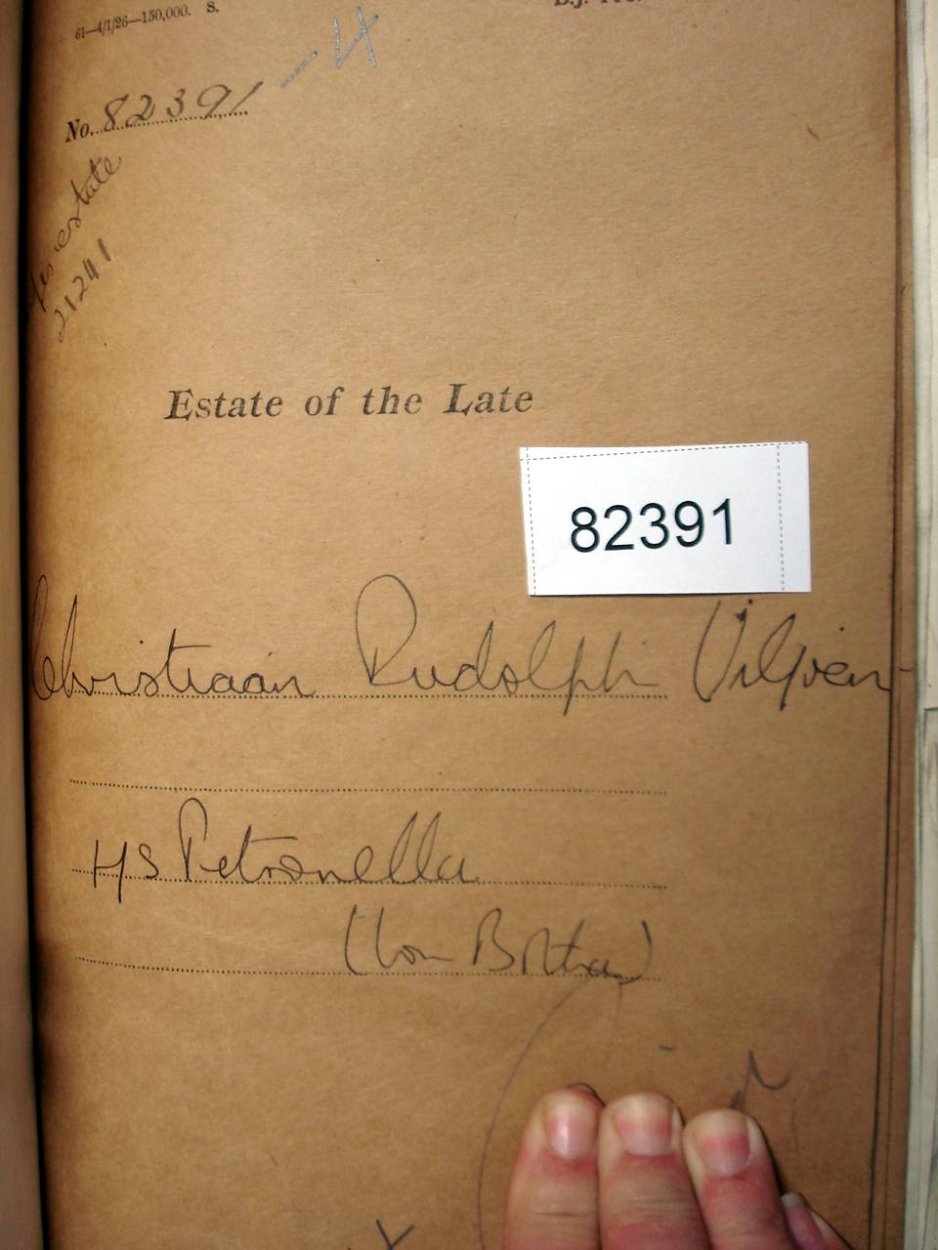 61—4/1/26—150,000. S.
-4
No. 82391
estate
21241
Estate of the Late
82391
Christiaan Rudolph Viljoen
HS Petronella